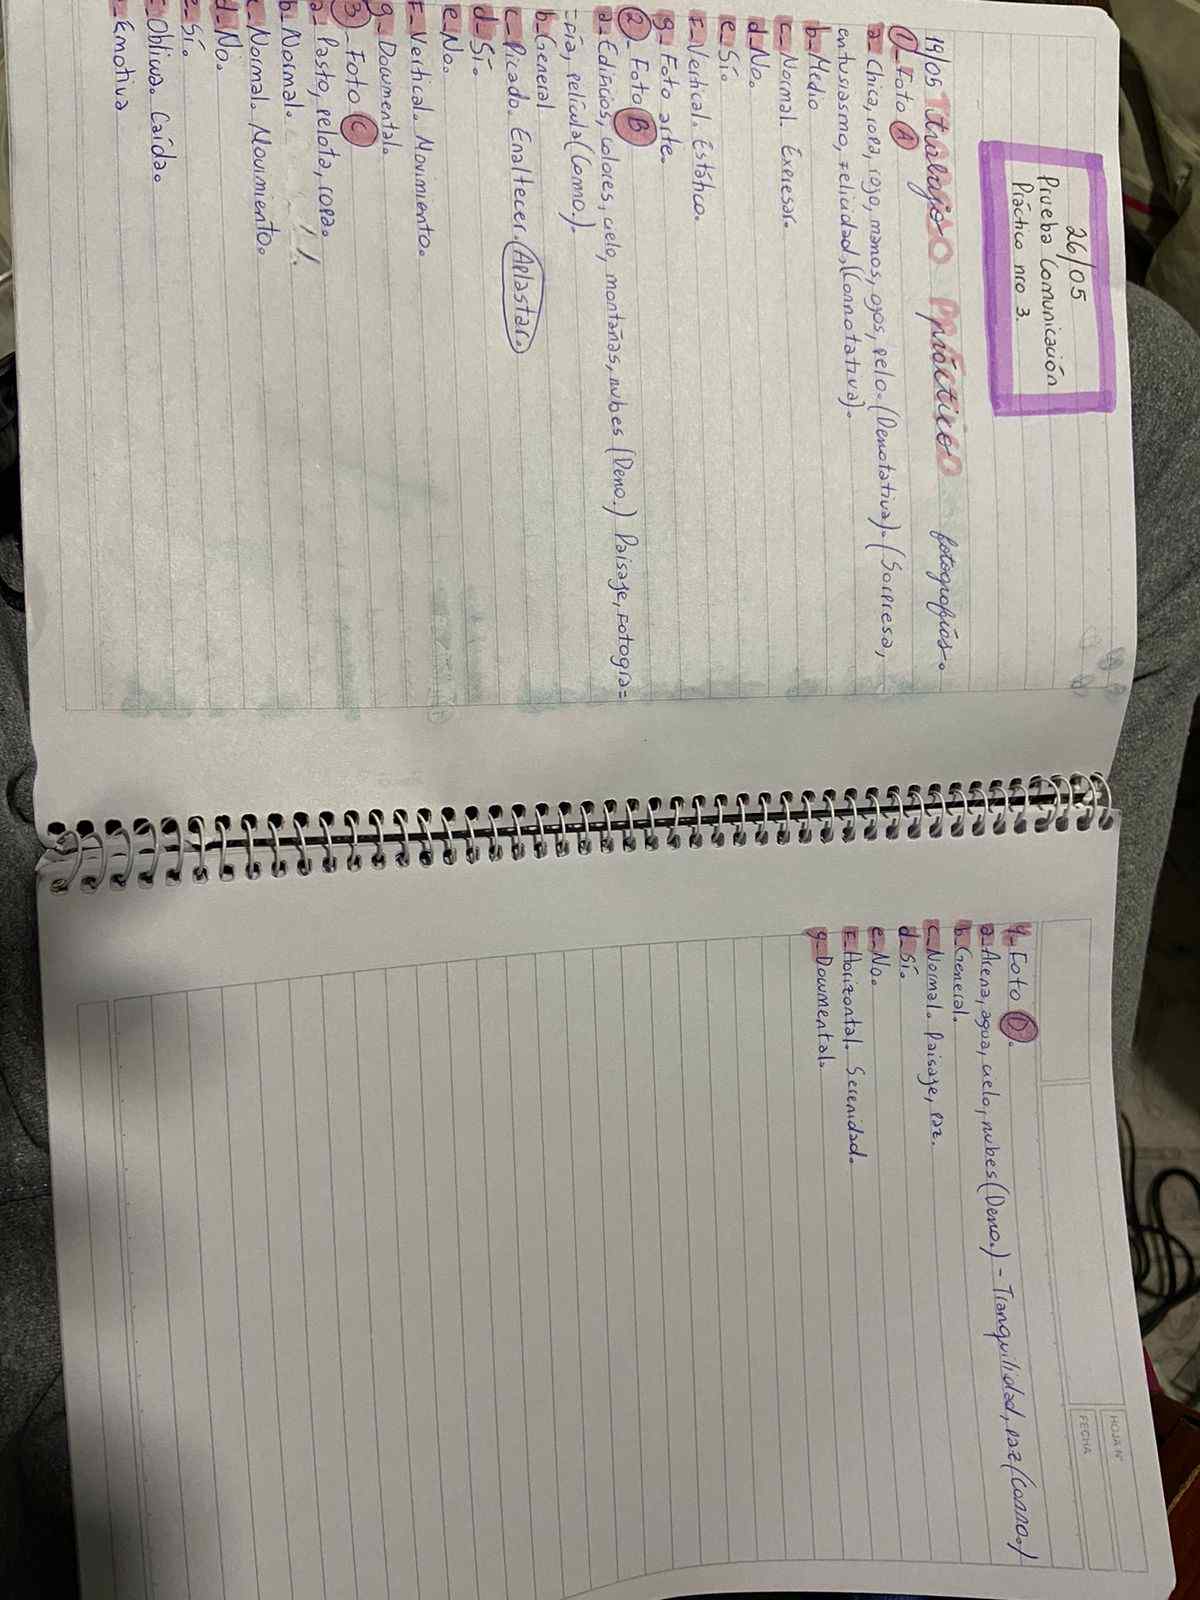 26/05
Prueba Comunicación
Práctico nro 3.
19/05 trabajo práctico fotografías.
1_ Foto A
a_ Chica, ropa, rojo, manos, ojos, pelo. (Denotativa). (Sorpresa,
entusiasmo, felicidad, (Connotativa).
b_ Medio
c_ Normal. Expresar.
d_ No.
e_ Sí.
F_ Vertical. Estático.
g_ Foto arte.
2_ Foto B
a_ Edificios, colores, cielo, montañas, nubes (Deno.) Paisaje, Fotogra=
=fía, película (Conno.).
b_ General
c_ Picado. Enaltecer. Aplastar.
d_ Sí.
e_ No.
F_ Vertical. Movimiento.
g_ Documental.
3_ Foto C
a_ Pasto, pelota, ropa.
b_ Normal.
c_ Normal. Movimiento.
d_ No.
e_ Sí.
F_ Oblicua. Caída.
g_ Emotiva
4_ Foto D.
a_ Arena, agua, cielo, nubes (Deno.) - Tranquilidad, paz (Conno.)
b_ General.
c_ Normal. Paisaje, paz.
d_ Sí.
e_ No.
F_ Horizontal. Serenidad.
g_ Documental.
HOJA N°
FECHA